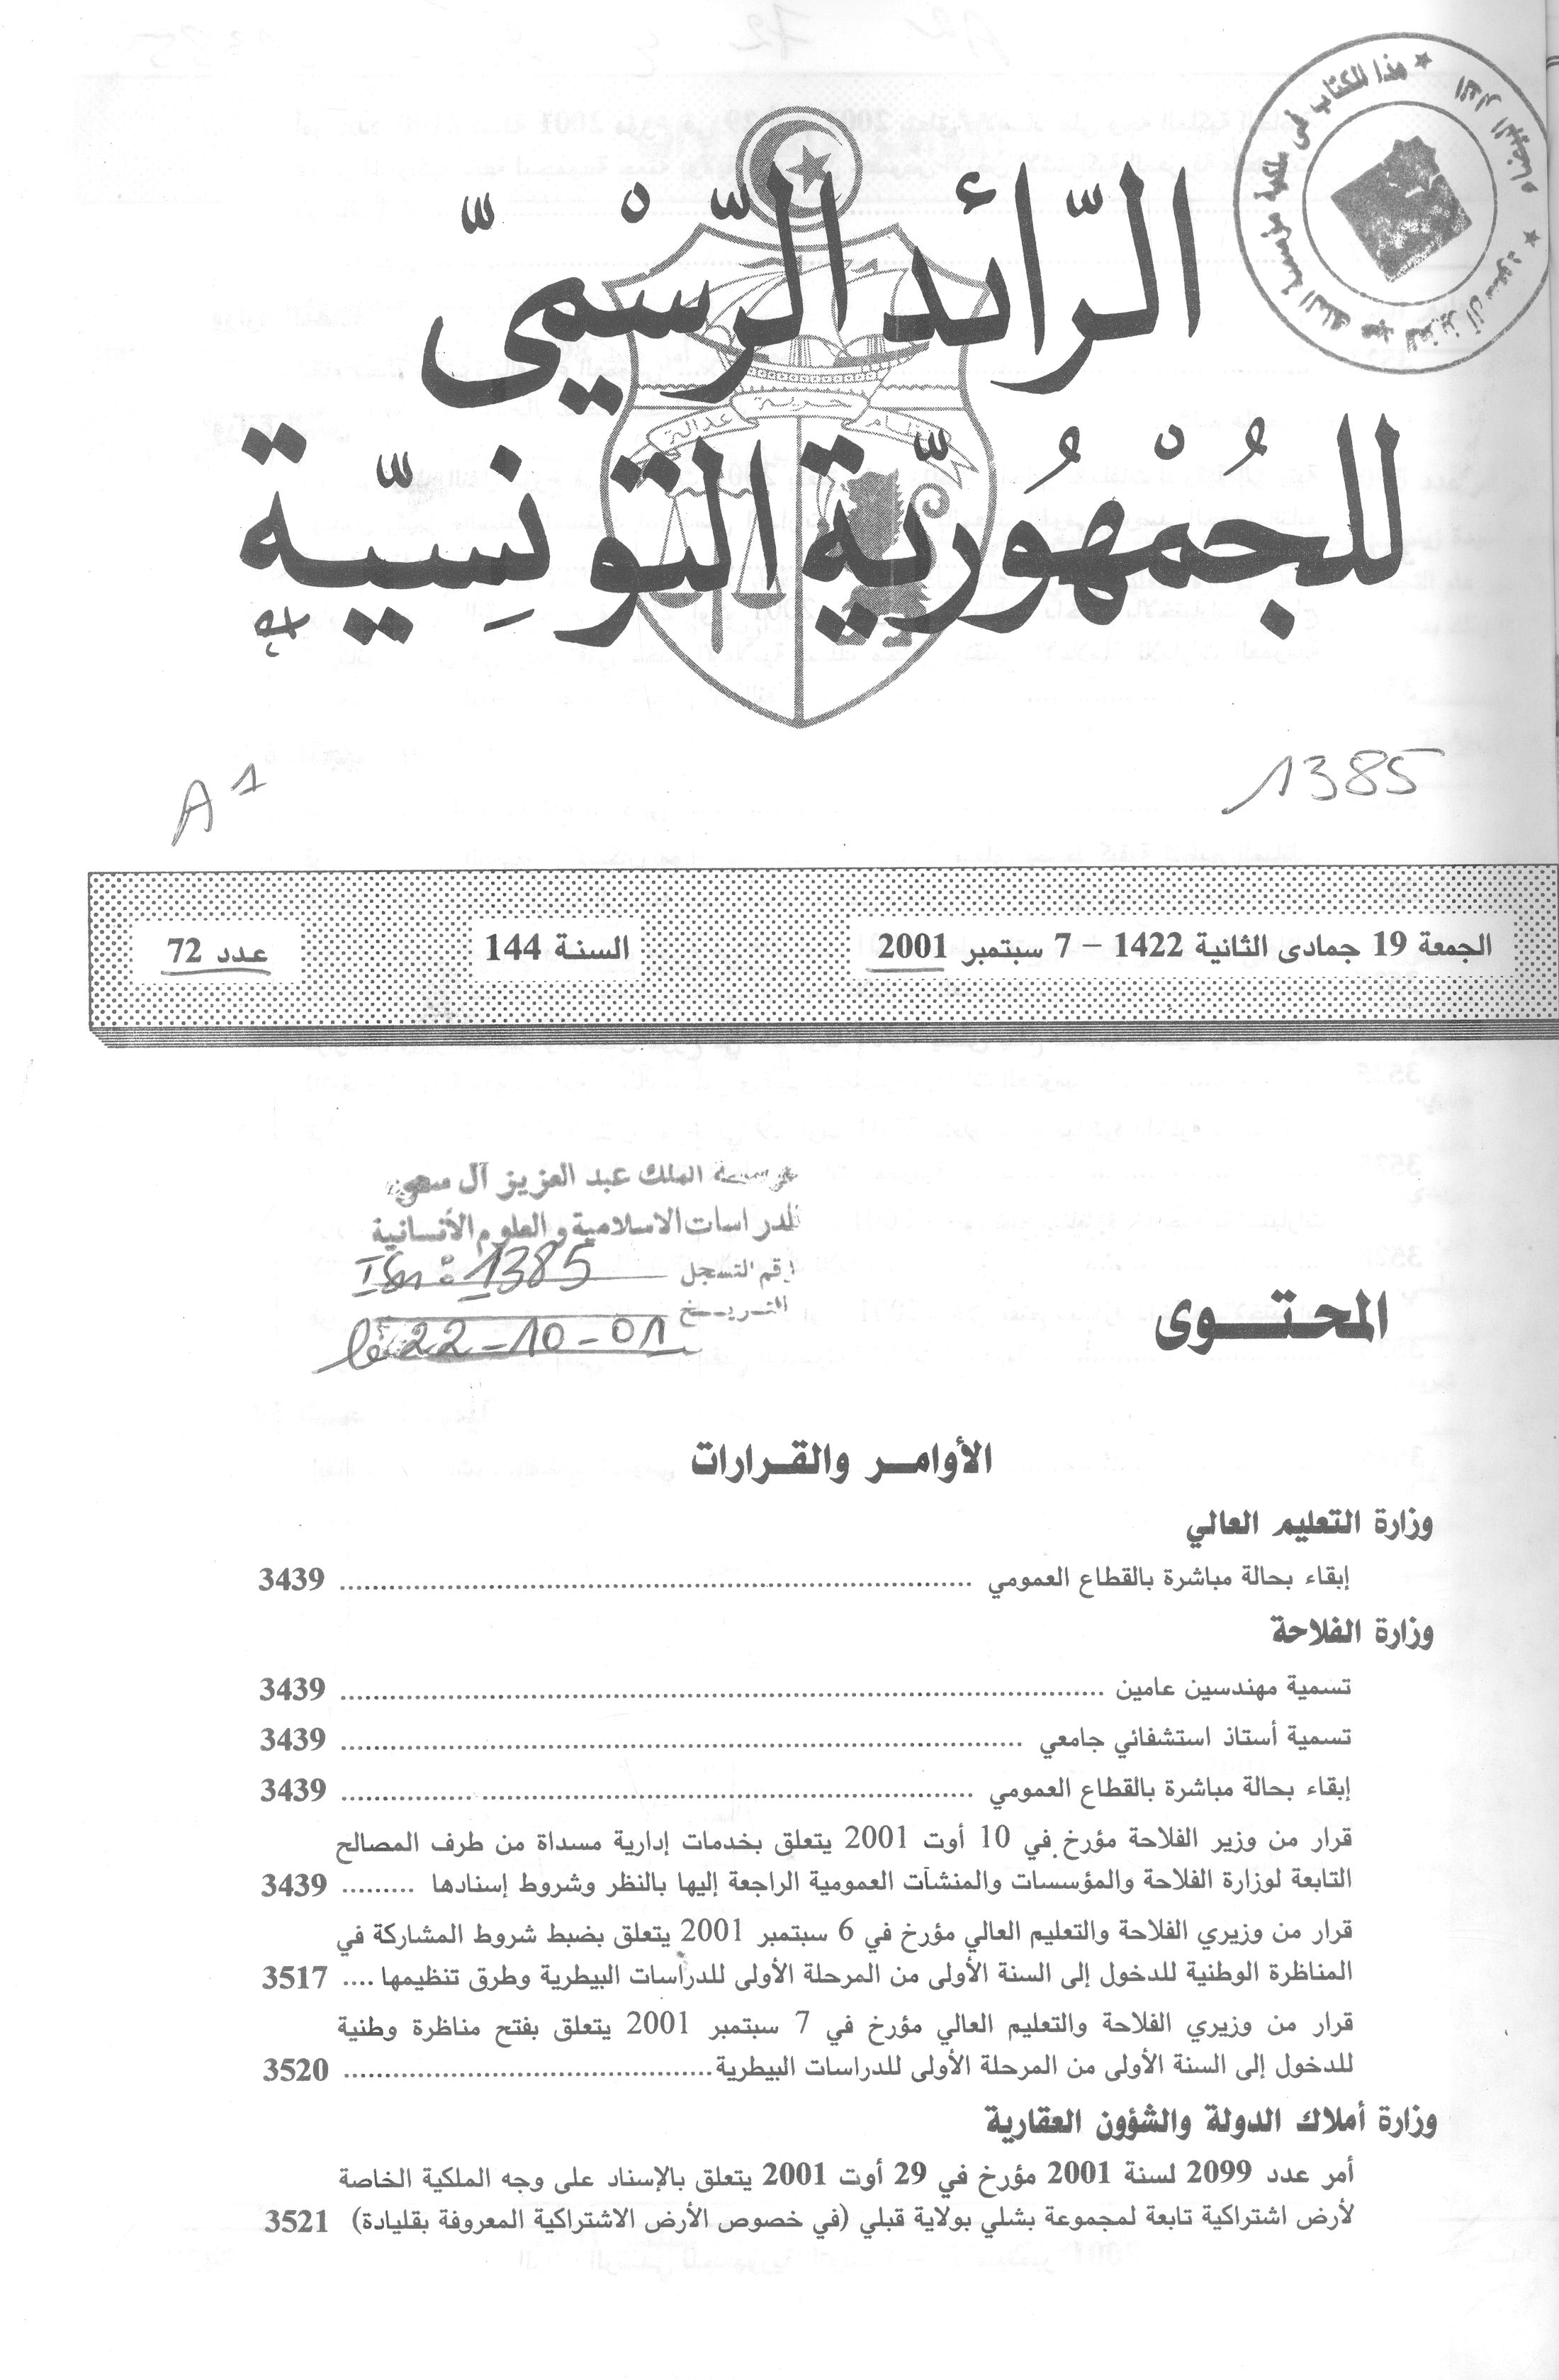 هذا الكتاب في ملكية مؤسسة الملك عبد العزيز آل سعود
الدار البيضاء
الرّائد الرّسْميّ
للجُمْهُوريّة التّونِسيّة
نظام حرية عدالة
A1
1385
الجمعة 19 جمادى الثانية 1422 – 7 سبتمبر 2001
السنة 144
عدد 72
مؤسسة الملك عبد العزيز آل سعود
للدراسات الاسلامية والعلوم الأنسانية
رقم التسجل Isn : 1385
التريخ le 22-10-01
المحتوى
الأوامر والقرارات
وزارة التعليم العالي
إبقاء بحالة مباشرة بالقطاع العمومي 3439
وزارة الفلاحة
تسمية مهندسين عامين 3439
تسمية أستاذ استشفائي جامعي 3439
إبقاء بحالة مباشرة بالقطاع العمومي 3439
قرار من وزير الفلاحة مؤرخ في 10 أوت 2001 يتعلق بخدمات إدارية مسداة من طرف المصالح
التابعة لوزارة الفلاحة والمؤسسات والمنشآت العمومية الراجعة إليها بالنظر وشروط إسنادها 3439
قرار من وزيري الفلاحة والتعليم العالي مؤرخ في 6 سبتمبر 2001 يتعلق بضبط شروط المشاركة في
المناظرة الوطنية للدخول إلى السنة الأولى من المرحلة الأولى للدراسات البيطرية وطرق تنظيمها 3517
قرار من وزيري الفلاحة والتعليم العالي مؤرخ في 7 سبتمبر 2001 يتعلق بفتح مناظرة وطنية
للدخول إلى السنة الأولى من المرحلة الأولى للدراسات البيطرية 3520
وزارة أملاك الدولة والشؤون العقارية
أمر عدد 2099 لسنة 2001 مؤرخ في 29 أوت 2001 يتعلق بالإسناد على وجه الملكية الخاصة
لأرض اشتراكية تابعة لمجموعة بشلي بولاية قبلي (في خصوص الأرض الاشتراكية المعروفة بقليادة) 3521